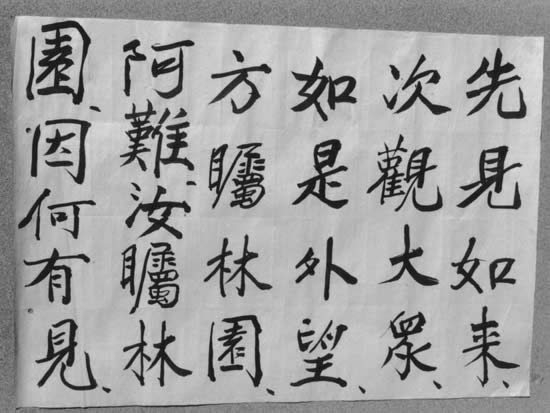 先見如来、
次觀大衆、
如是外望、
方矚林園、
阿難汝矚林
園、因何有見、